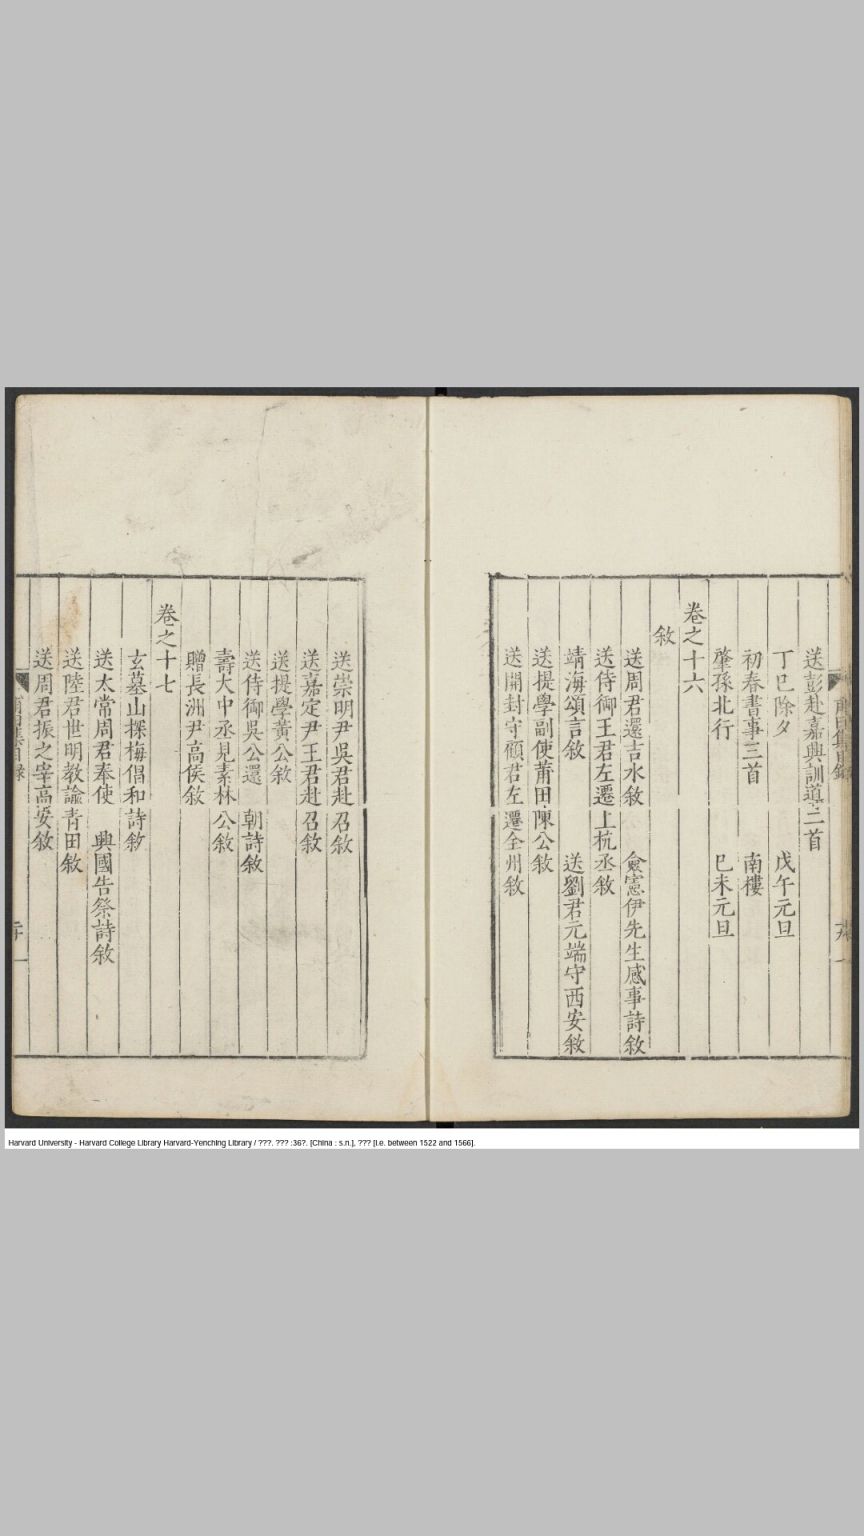 送彭赴嘉興訓道二首
丁巳除夕 戊午元旦
初春書事三首 南樓
肇孫北行 巳未元旦
卷之十六
敘
送周君還吉水敘 僉憲伊先生感事詩敘
送侍御王君左遷上杭丞敘
靖海頌言敘 送劉君元端守西安敘
送提學副使莆田陳公敘
送開封守顧君左遷全州敘
送崇明尹吳君赴 召敘
送嘉定尹王君赴 召敘
送提學黃公敘
送侍御吳公還 朝詩敘
壽大中丞見素林公敘
贈長洲尹高侯敘
卷之十七
玄墓山探梅倡和詩敘
送太常周君奉使 興國告祭詩敘
送陸君世明教諭青田敘
送周君振之宰高安敘
Harvard University - Harvard College Library Harvard-Yenching Library / ???. ??? :36?. [China : s.n.], ??? [i.e. between 1522 and 1566].